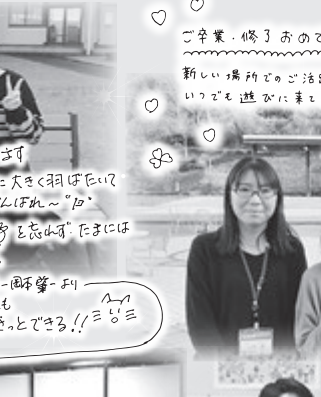 ご卒業・修了おめで
新しい場所でのご活
いつでも遊びに来て
ます
に大きく羽ばたいて
んばれ～
を忘れず たまには
より
も
きっとできる!!